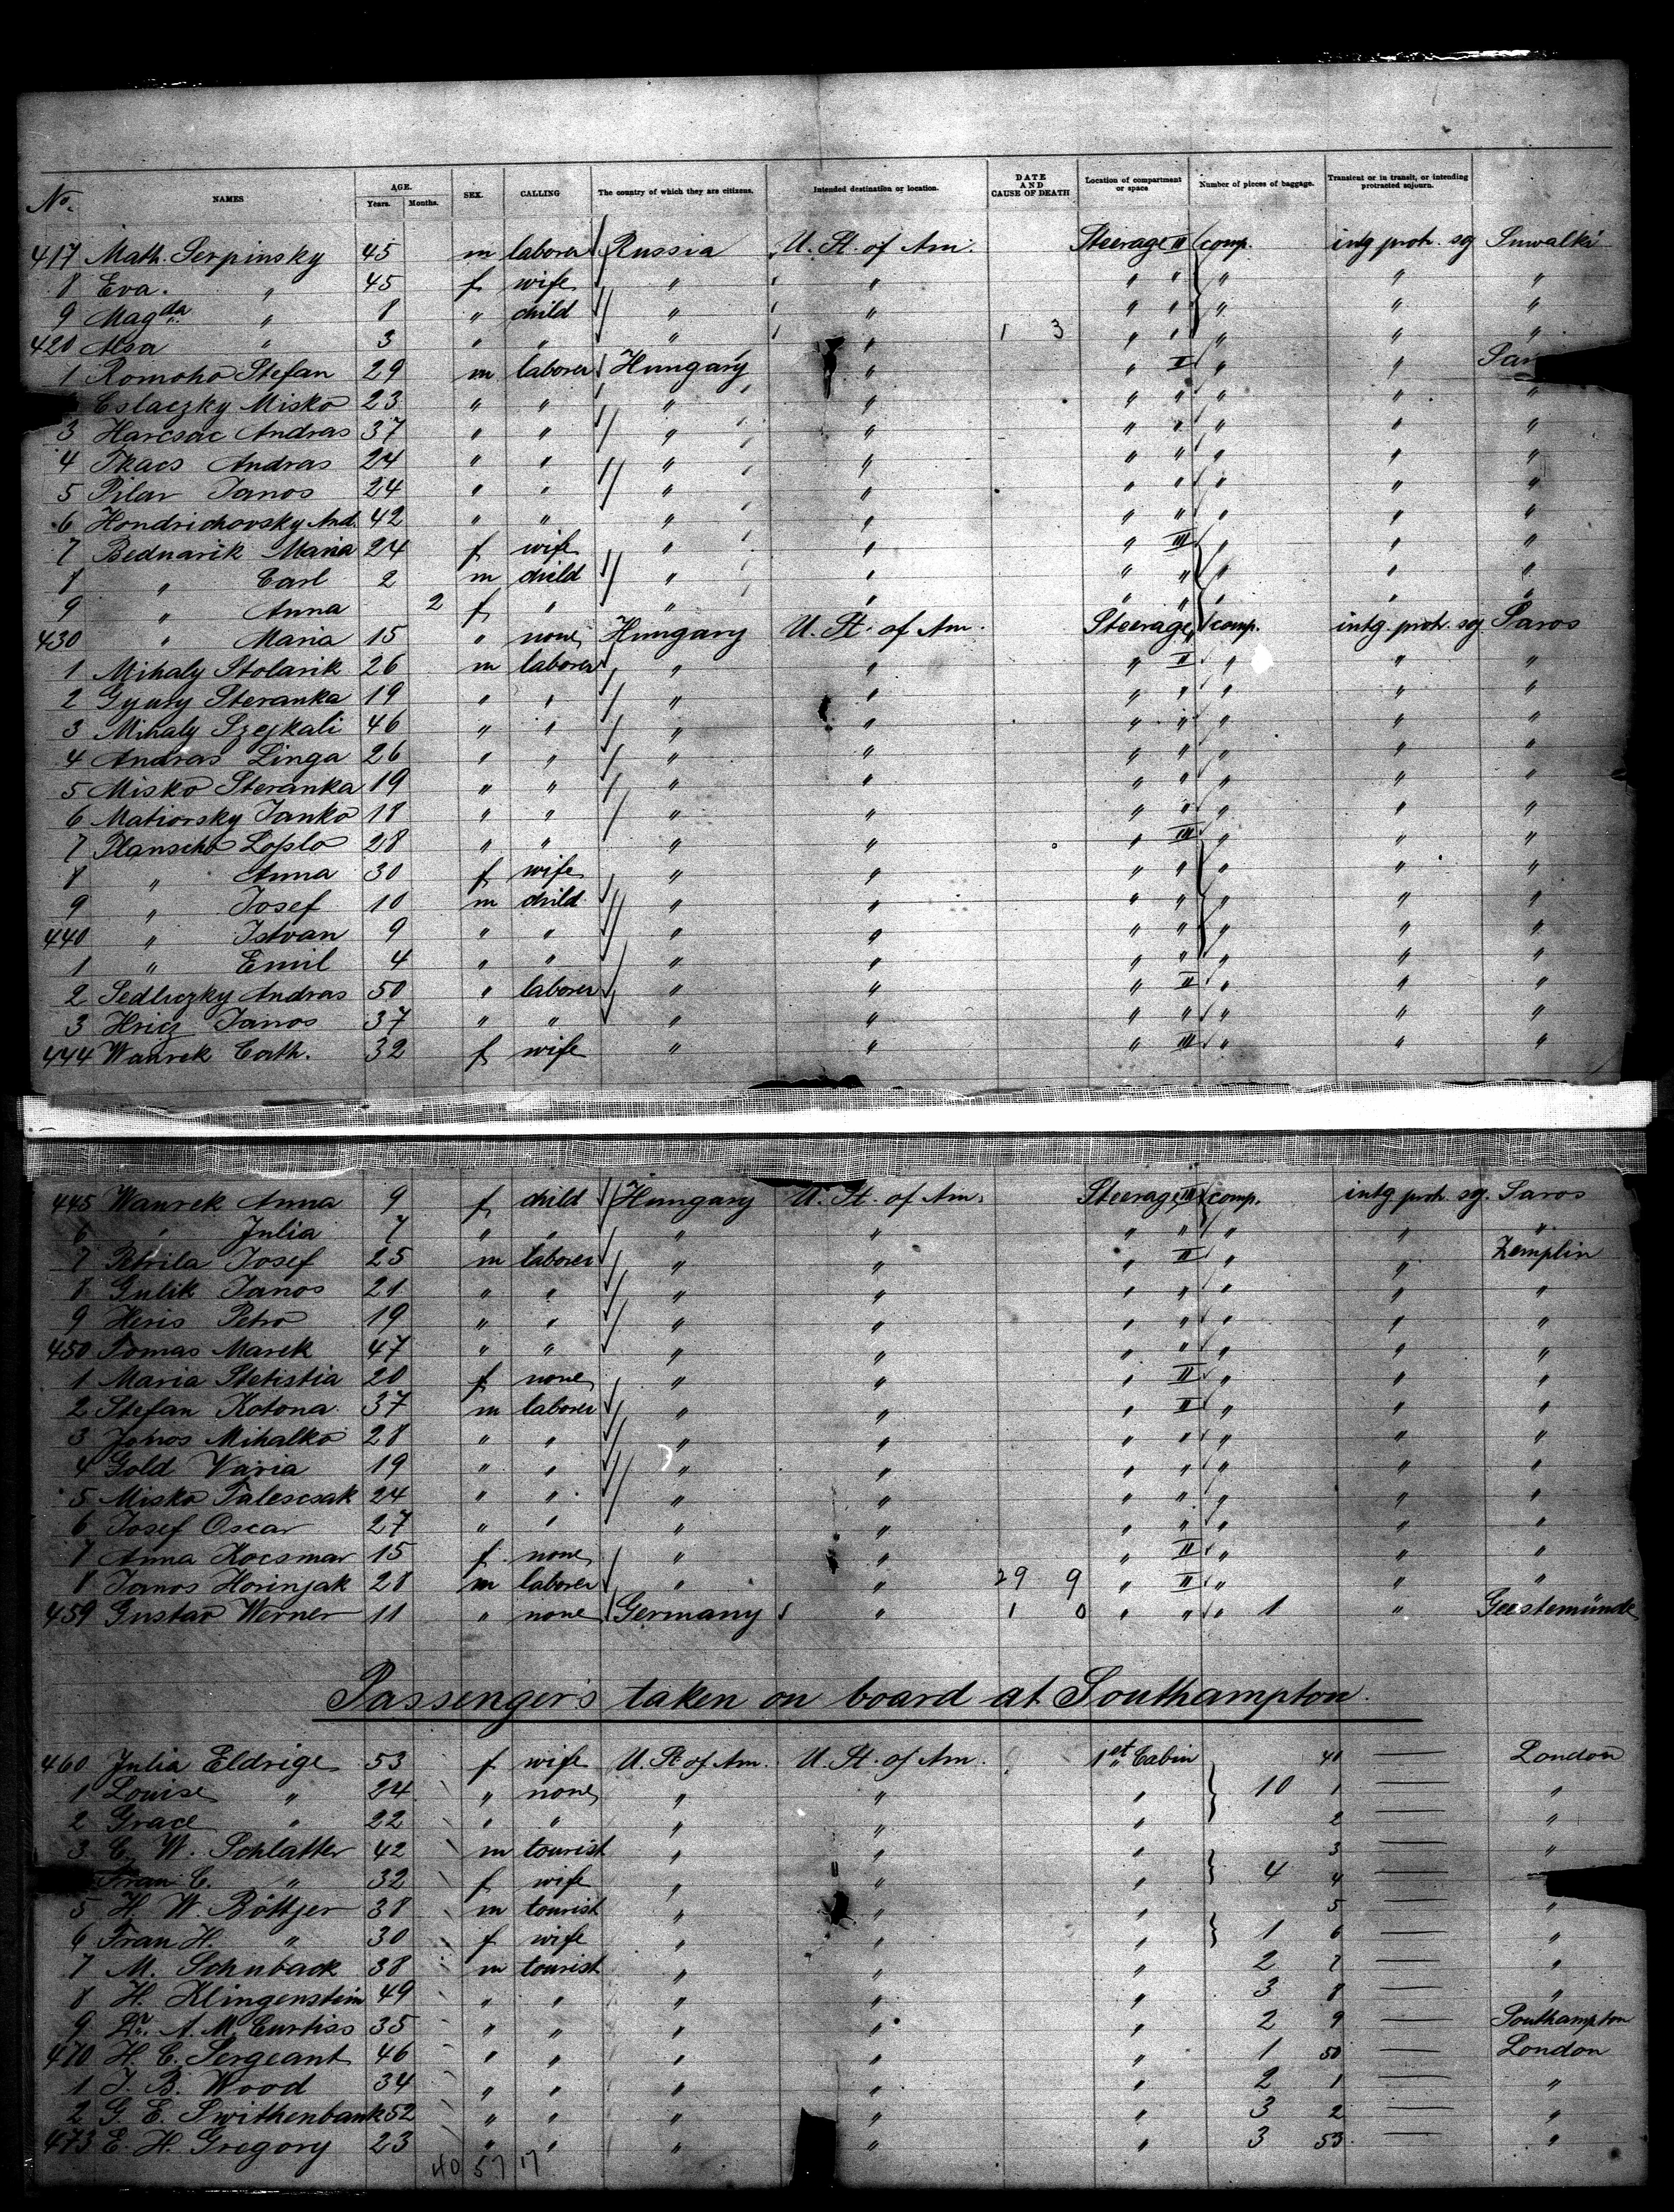 No. NAMES AGE. Years. Months. SEX. CALLING The country of which they are citizens. Intended destination or location. DATE AND CAUSE OF DEATH Location of compartment or space Number of pieces of baggage. Transient or in transit, or intending protracted sojourn.
417 Math. Serpinsky 45 m laborer Russia U. St. of Am. Steerage II comp. intg prot. sg Suwalki
8 Eva. " 45 f wife " " " " " " "
9 Magda " 8 " child " " " " " " "
420 " 3 " " " " 1 3 " " " " "
1 Romoho Stefan 29 m laborer Hungary " " II " "
Eslaczky Misko 23 " " " " " " " " "
3 Harcsac Andras 37 " " " " " " " " "
4 Tkacs Andras 24 " " " " " " " " "
5 Pilar Janos 24 " " " " " " " " "
6 Hondrichovsky And. 42 " " " " " " " " "
7 Bednarik Maria 24 f wife " " " III " " "
8 " Carl 2 m child " " " " " " "
9 " Anna 2 f " " " " " " " "
430 " Maria 15 " none Hungary U. St. of Am. Steerage " comp. intg. prot. sg Saros
1 Mihaly Stolarik 26 m laborer " " " II " " "
2 Gyury Steranka 19 " " " " " " " " "
3 Mihaly Szejkali 46 " " " " " " " " "
4 Andras Linga 26 " " " " " " " " "
5 Misko Steranka 19 " " " " " " " " "
6 Matiorsky Janko 18 " " " " " " " " "
7 Planscho Loslo 28 " " " " " III " " "
8 " Anna 30 f wife " " " " " " "
9 " Josef 10 m child " " " " " " "
440 " Istvan 9 " " " " " " " " "
1 " Emil 4 " " " " " " " " "
2 Sedliczky Andras 50 " laborer " " " II " " "
3 Hricz Janos 37 " " " " " " " " "
444 Waurek Cath. 32 f wife " " " III " " "
445 Waurek Anna 9 f child Hungary U. St. of Am. Steerage III comp. intg prot. sg. Saros
6 " Julia 7 " " " " " " " " "
7 Petrila Josef 25 m laborer " " " II " " Zemplin
8 Gulik Janos 21 " " " " " " " " "
9 Heris Petro 19 " " " " " " " " "
450 Tomas Marek 47 " " " " " " " " "
1 Maria Stetistia 20 f none " " " II " " "
2 Stefan Kotona 37 m laborer " " " II " " "
3 Janos Mihalko 28 " " " " " " " " "
4 Gold Varia 19 " " " " " " " " "
5 Misko Talescsak 24 " " " " " " " " "
6 Josef Oscar 27 " " " " " " " " "
7 Anna Kocsmar 15 f none " " " II " " "
8 Janos Horinjak 28 m laborer " " 29 9 " II " " "
459 Gustav Werner 11 " none Germany " 1 0 " " " 1 " Geestemünde
Passengers taken on board at Southampton.
460 Julia Eldrige 53 f wife U. St. of Am. U. St. of Am. 1st Cabin 40 — London
1 Louise " 24 " none " " " 10 1 — "
2 Grace " 22 " " " " " 2 — "
3 C. W. Schlatter 42 m tourist " " " 3 — "
Frau C. " 32 f wife " " " 4 4 —
5 H. W. Böttjer 38 m tourist " " " 5 — "
6 Frau H. " 30 f wife " " " 1 6 — "
7 M. Schuback 38 m tourist " " " 2 7 — "
8 H. Klingenstein 49 " " " " " 3 8 — "
9 Dr. A. M. Curtiss 35 " " " " " 2 9 — Southampton
470 H. C. Sergeant 46 " " " " " 1 50 — London
1 J. B. Wood 34 " " " " " 2 1 — "
2 G. E. Swithenbank 52 " " " " " 3 2 — "
473 E. H. Gregory 23 " " " " " 3 53 — "
40 57 17